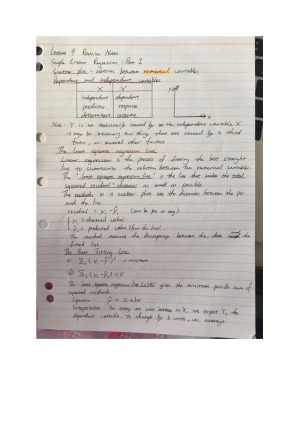 Lecture 9 Revision Notes
Simple Linear Regression - Part 1
Scatter plots - relation between numerical variables
Dependent and independent variables
X Y
independent dependent
predictor response
determinant outcome
Y
X
Note: Y is not necessarily caused by the independent variable X.
It may be
factor, or several other factors.
The least squares regression line
Linear regression is the process of finding the best straight
line to summarise the relation between two numerical variables.
The "least squares regression line" is the line that makes the total
squared residual as small as possible
The residuals in a scatter plot are the distances between the pts
and the line.
residual = yi - ŷi (can be pos or neg)
yi = observed value
ŷi = predicted value (from the line)
The residual measures the discrepancy between the data and the
fitted line.
The Best Fitting Line
① Σi (yi - ŷi)² is minimum
② Σi (yi - ŷi) = 0
The least squares regression line (LSRL) gives the minimum possible sum of
squared residuals.
Equation: Ŷ = a + bx
Interpretation: For every one unit increase in X, we expect Y, the
dependent variable, to change by b units, on average